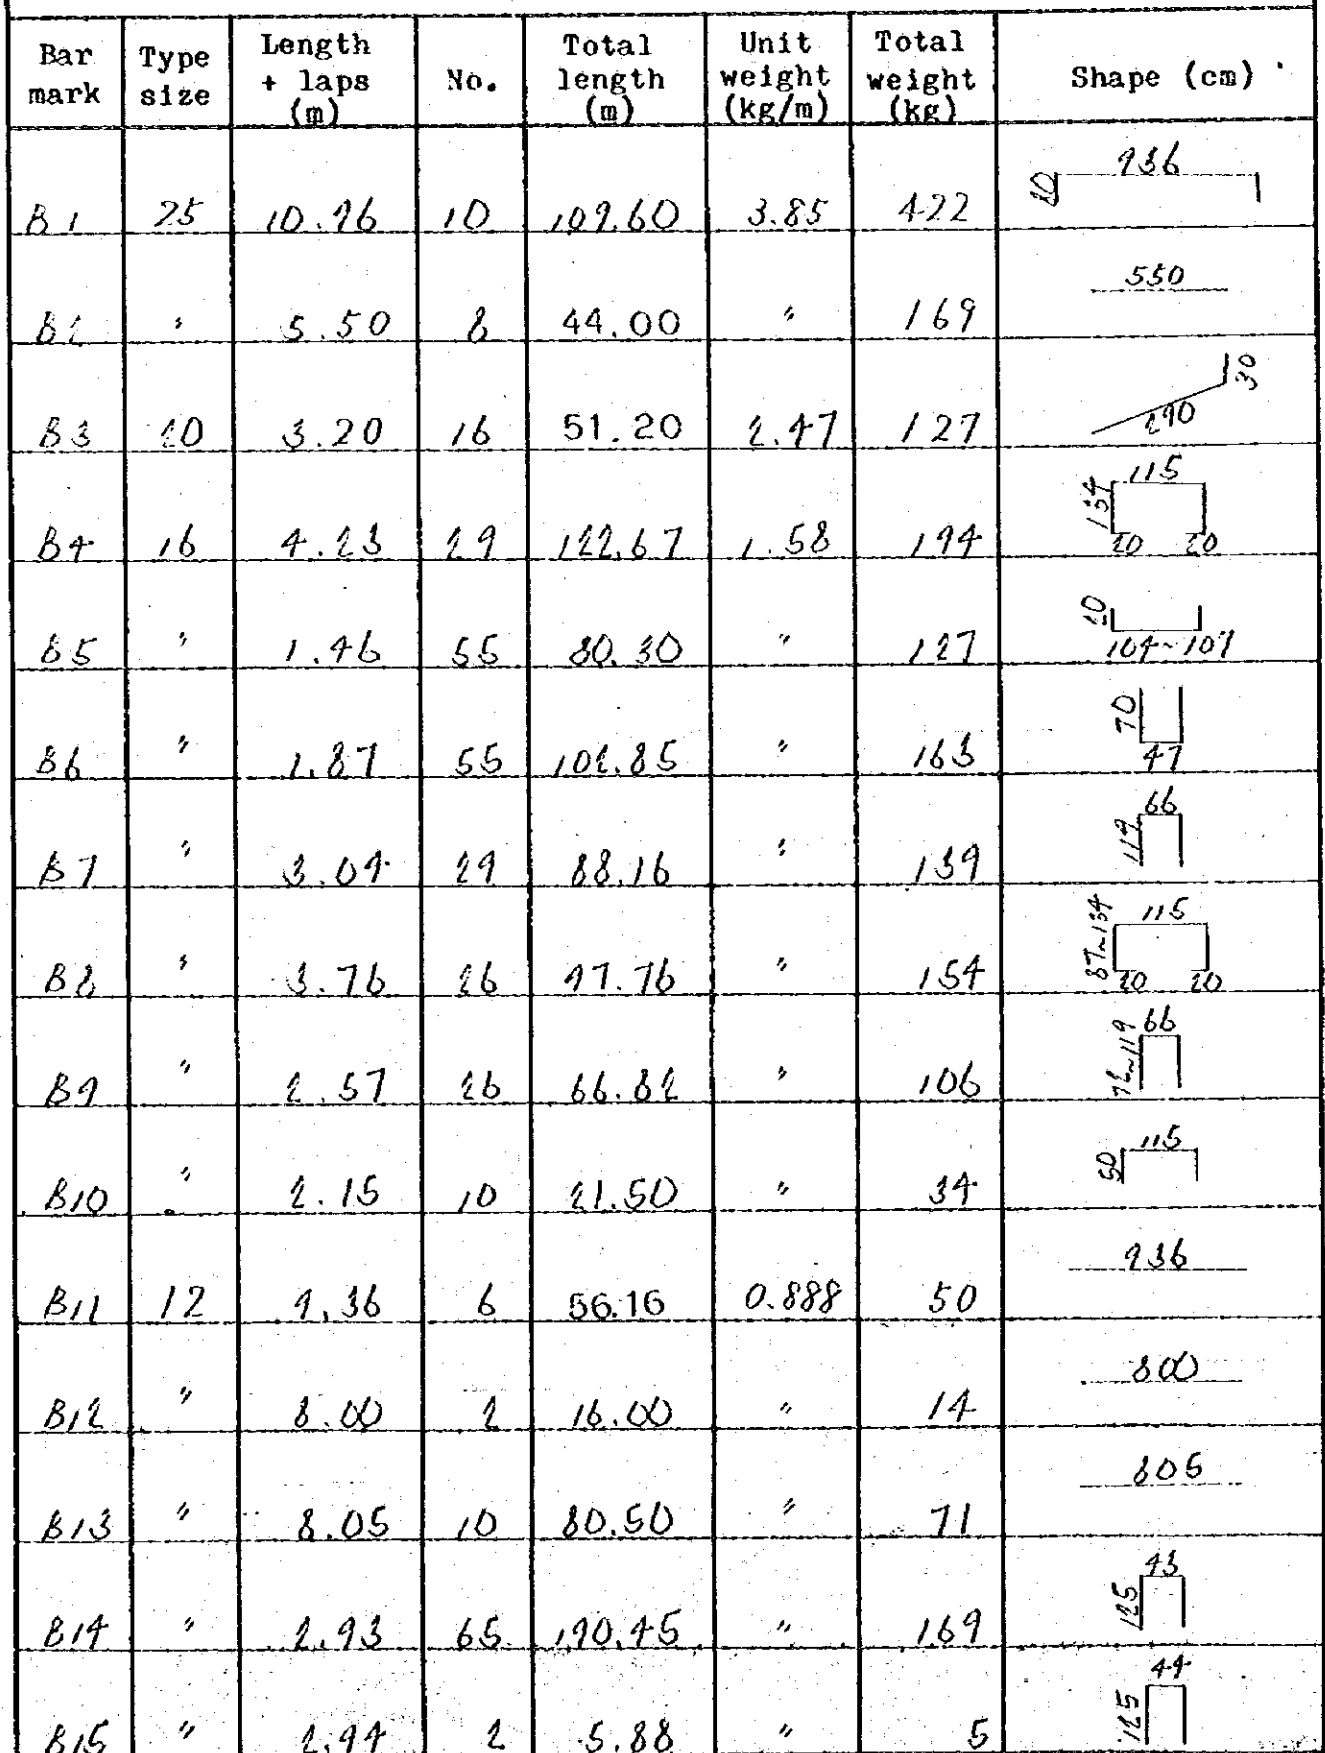 Bar mark | Type size | Length + laps (m) | No. | Total length (m) | Unit weight (kg/m) | Total weight (kg) | Shape (cm)
B1 25 10.96 10 109.60 3.85 422 80 936
B2 " 5.50 8 44.00 " 169 550
B3 20 3.20 16 51.20 2.47 127 290 30
B4 16 4.23 29 122.67 1.58 194 134 115 20 20
B5 " 1.46 55 80.30 " 127 20 104~107
B6 " 1.87 55 102.85 " 163 70 47
B7 " 3.04 29 88.16 " 139 119 66
B8 " 3.76 26 97.76 " 154 87~134 115 20 20
B9 " 2.57 26 66.82 " 106 72~119 66
B10 " 2.15 10 21.50 " 34 50 115
B11 12 9.36 6 56.16 0.888 50 936
B12 " 8.00 2 16.00 " 14 800
B13 " 8.05 10 80.50 " 71 805
B14 " 2.93 65 190.45 " 169 125 43
B15 " 2.94 2 5.88 " 5 125 44